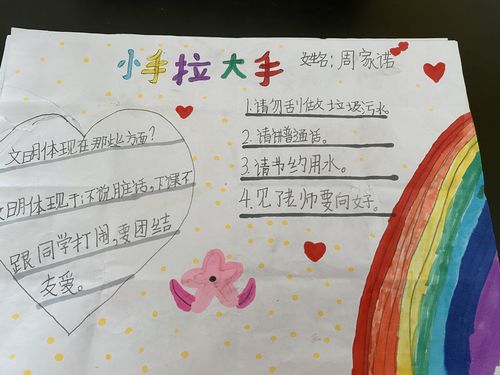 小手拉大手
姓名:周家诺
文明体现在那些方面?
文明体现于:不说脏话,下课不
跟同学打闹,要团结
友爱。
1.请勿乱做垃圾污水。
2.请讲普通话。
3.请节约用水。
4.见了老师要问好。